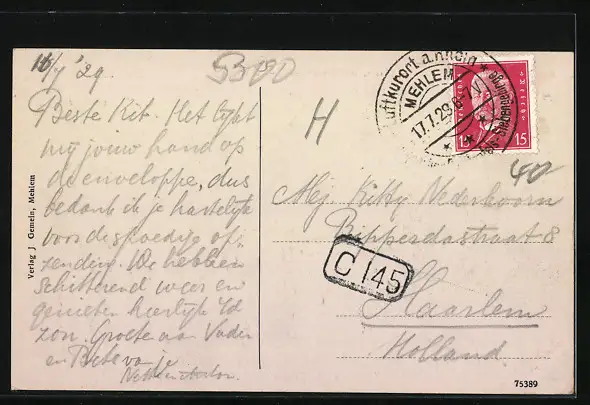 16/7 '29
5300
Beste Kit. Het lijkt
mij jouw hand op
de enveloppe, dus
bedank ik je hartelijk
voor de spoedige op-
zending. We hebben
schitterend weer en
genieten heerlijk vd
zon. Groete aan Vader
en van je
Verlag J. Gemein, Mehlem
H
Luftkurort a. Rhein
MEHLEM
17.7.29.
15 15
40
Mej. Kitty Nederhoorn
Ripperdastraat 8
C 145
Haarlem
Holland
75389